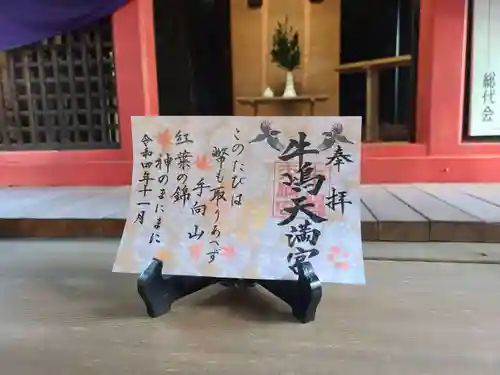 奉拝
牛嶋天満宮
このたびは
幣も取りあへず
手向山
紅葉の錦
神のまにまに
令和四年十一月
総代会